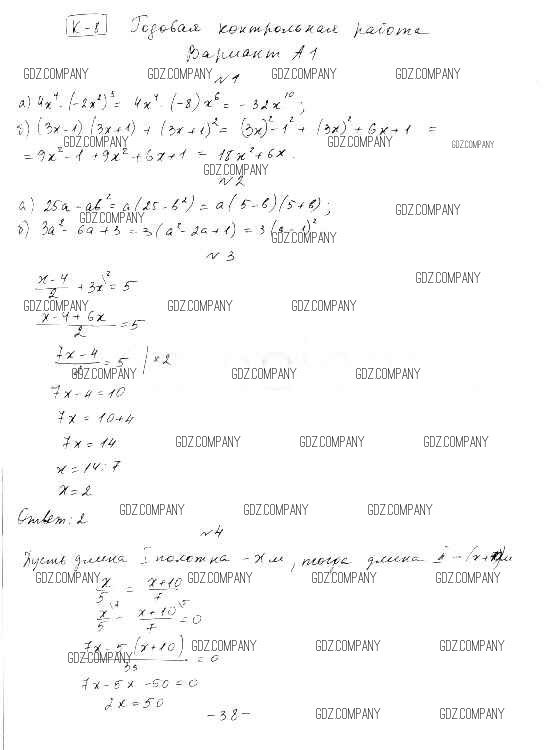 К-8 Годовая контрольная работа
Вариант А1
№1
а) 4x⁴·(-2x²)³ = 4x⁴·(-8)x⁶ = -32x¹⁰;
б) (3x-1)(3x+1) + (3x+1)² = (3x)²-1² + (3x)² + 6x+1 =
= 9x²-1 + 9x² + 6x+1 = 18x²+6x.
№2
а) 25a - ab² = a(25-b²) = a(5-b)(5+b);
б) 3a²-6a+3 = 3(a²-2a+1) = 3(a-1)²
№3
(x-4)/2 + 3x\² = 5
(x-4+6x)/2 = 5
(7x-4)/2 = 5 | ×2
7x-4=10
7x = 10+4
7x = 14
x = 14:7
x = 2
Ответ: 2
№4
Пусть длина I полотна - x м, тогда длина II - (x+10)м
x/5 = (x+10)/7
x/5\⁷ - (x+10)/7\⁵ = 0
(7x-5(x+10))/35 = 0
7x-5x-50=0
2x=50
-38-
GDZ.COMPANY GDZ.COMPANY GDZ.COMPANY GDZ.COMPANY
GDZ.COMPANY GDZ.COMPANY GDZ.COMPANY
GDZ.COMPANY
GDZ.COMPANY GDZ.COMPANY
GDZ.COMPANY
GDZ.COMPANY
GDZ.COMPANY GDZ.COMPANY GDZ.COMPANY
GDZ.COMPANY GDZ.COMPANY GDZ.COMPANY
GDZ.COMPANY GDZ.COMPANY GDZ.COMPANY
GDZ.COMPANY GDZ.COMPANY GDZ.COMPANY
GDZ.COMPANY GDZ.COMPANY GDZ.COMPANY GDZ.COMPANY
GDZ.COMPANY GDZ.COMPANY GDZ.COMPANY
GDZ.COMPANY
GDZ.COMPANY GDZ.COMPANY